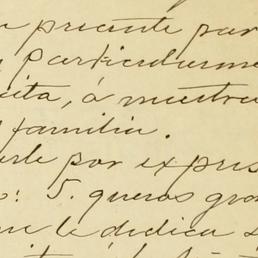 presente par
particularme
cita, á nuestra
familia.
rle por expres
S. queras gra
me le dedica s